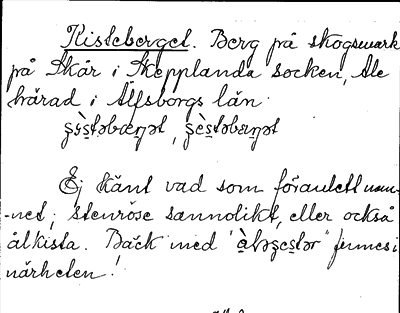 Kisteberget. Berg på skogsmark
på Skår i Skepplanda socken, Ale
härad i Älfsborgs län.
Ej känt vad som föranlett nam-
-net; stenröse sannolikt, eller också
ålkista. Bäck med "   " finnes i
närheten!